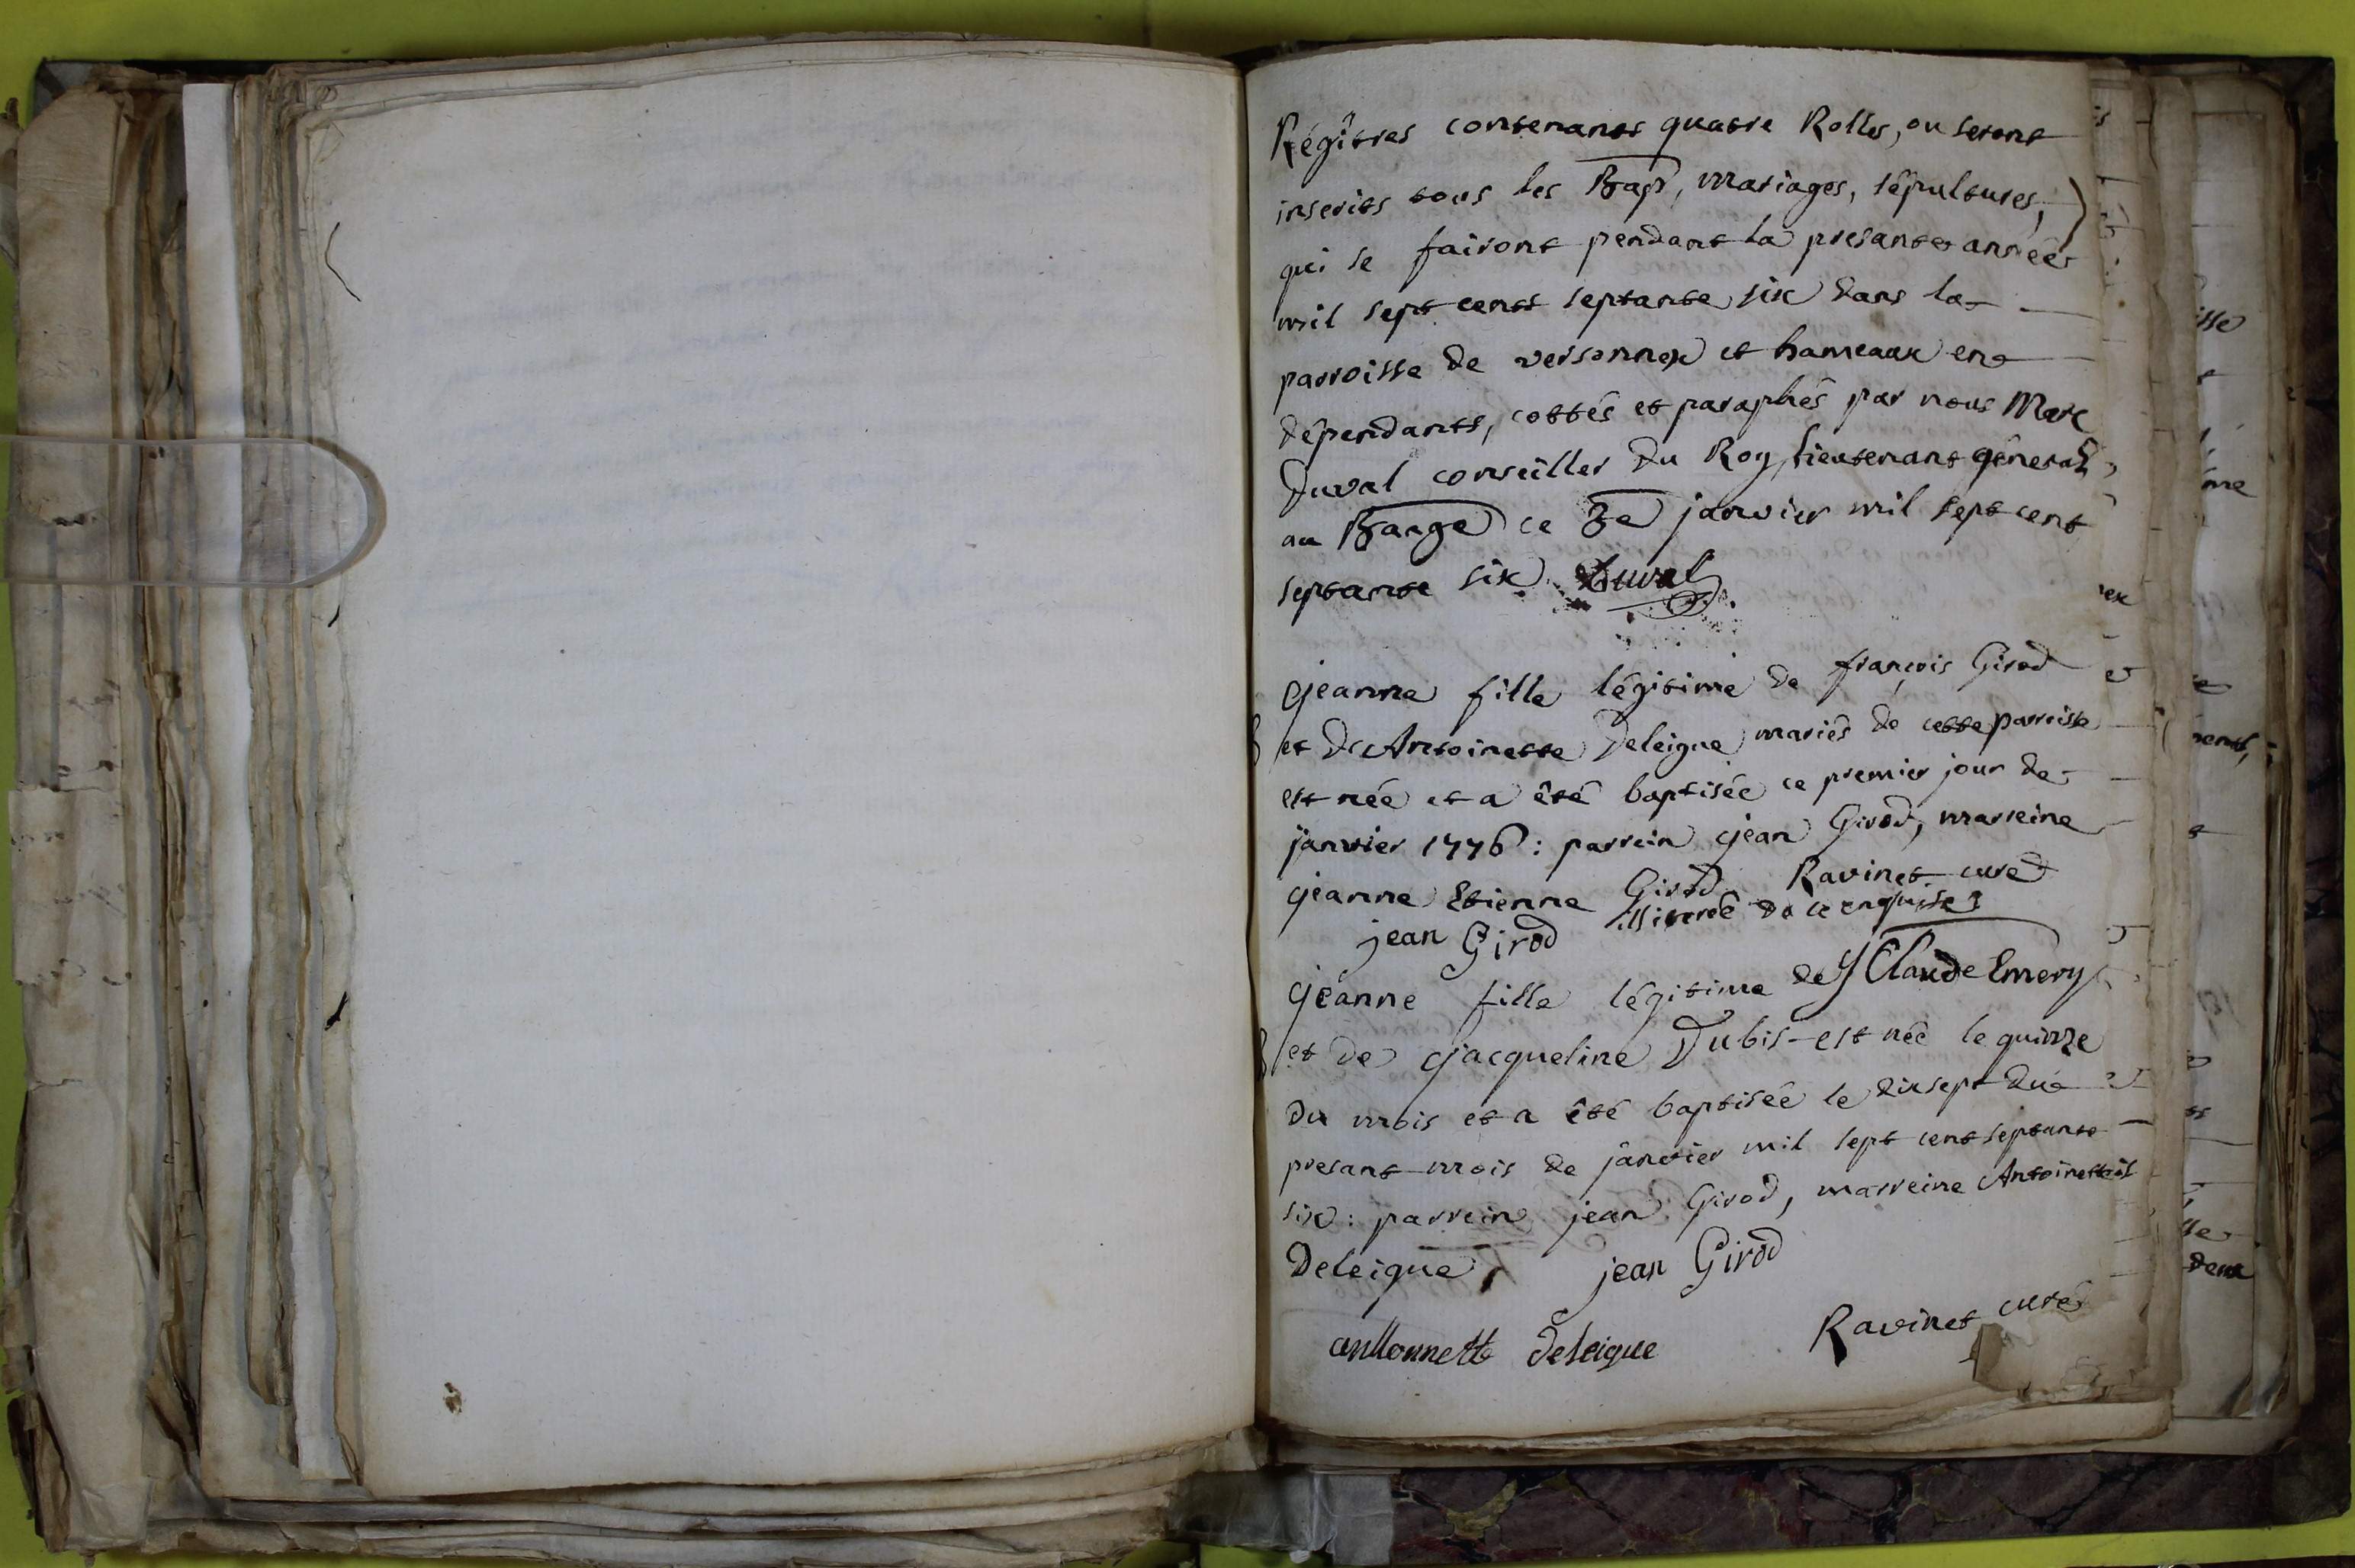 Régîtres contenants quatre Rolles, ou seront
inscrits tous les Bap, mariages, sépultures,
qui se fairont pendant la presante année
mil sept cent septante six dans la
parroisse de versonnex et hameaux en
dépendants, cottés et paraphés par nous Marc
Duval conseiller du Roy, lieutenant général
au Baage ce 3e janvier mil sept cent
septante six. Duval
jeanne fille légitime de françois Girod
et de Antoinette Deleigue mariés de cette parroisse
est née et a été baptisée ce premier jour de
janvier 1776: parrein jean Girod, marreine
jeanne Etienne Girod Ravinet curé
jean Girod illiterée de ce enquise
jeanne fille légitime de Claude Emery
et de jacqueline Dubis est née le quinze
du mois et a été baptisée le dixsept du
presant mois de janvier mil sept cent septante
six: parrein jean Girod, marreine Antoinette
Deleigue jean Girod
deleigue Ravinet curé